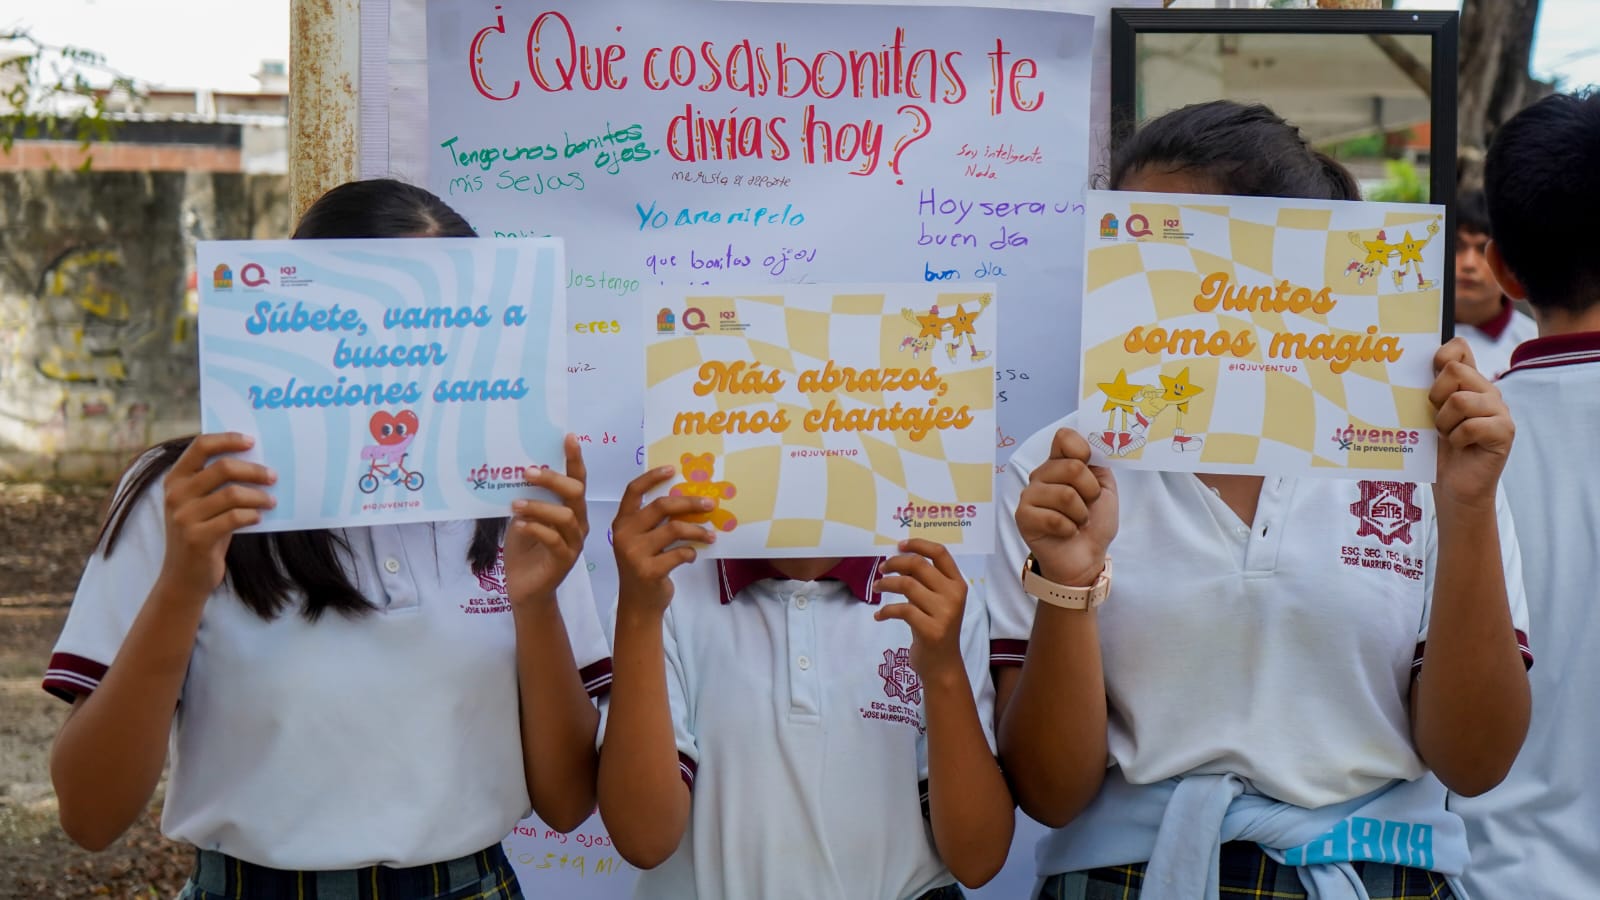 ¿Qué cosas bonitas te
dirías hoy?
Tengo unos bonitos
ojos.
mis sejas
me gusta el deporte
Soy inteligente
Nada
Yo amo mi pelo
Hoy sera un
buen día
que bonitos ojos
buen día
los tengo
eres
IQJ
Súbete, vamos a
buscar
relaciones sanas
jóvenes
x la prevención
@IQJUVENTUD
IQJ
Más abrazos,
menos chantajes
@IQJUVENTUD
jóvenes
x la prevención
IQJ
Juntos
somos magia
@IQJUVENTUD
jóvenes
x la prevención
ESC. SEC. TEC.
"JOSE MARRUFO
ESC. SEC. TEC. N
"JOSE MARRUFO
ESC. SEC. TEC. No. 15
"JOSÉ MARRUFO HERNANDEZ"
mis ojos